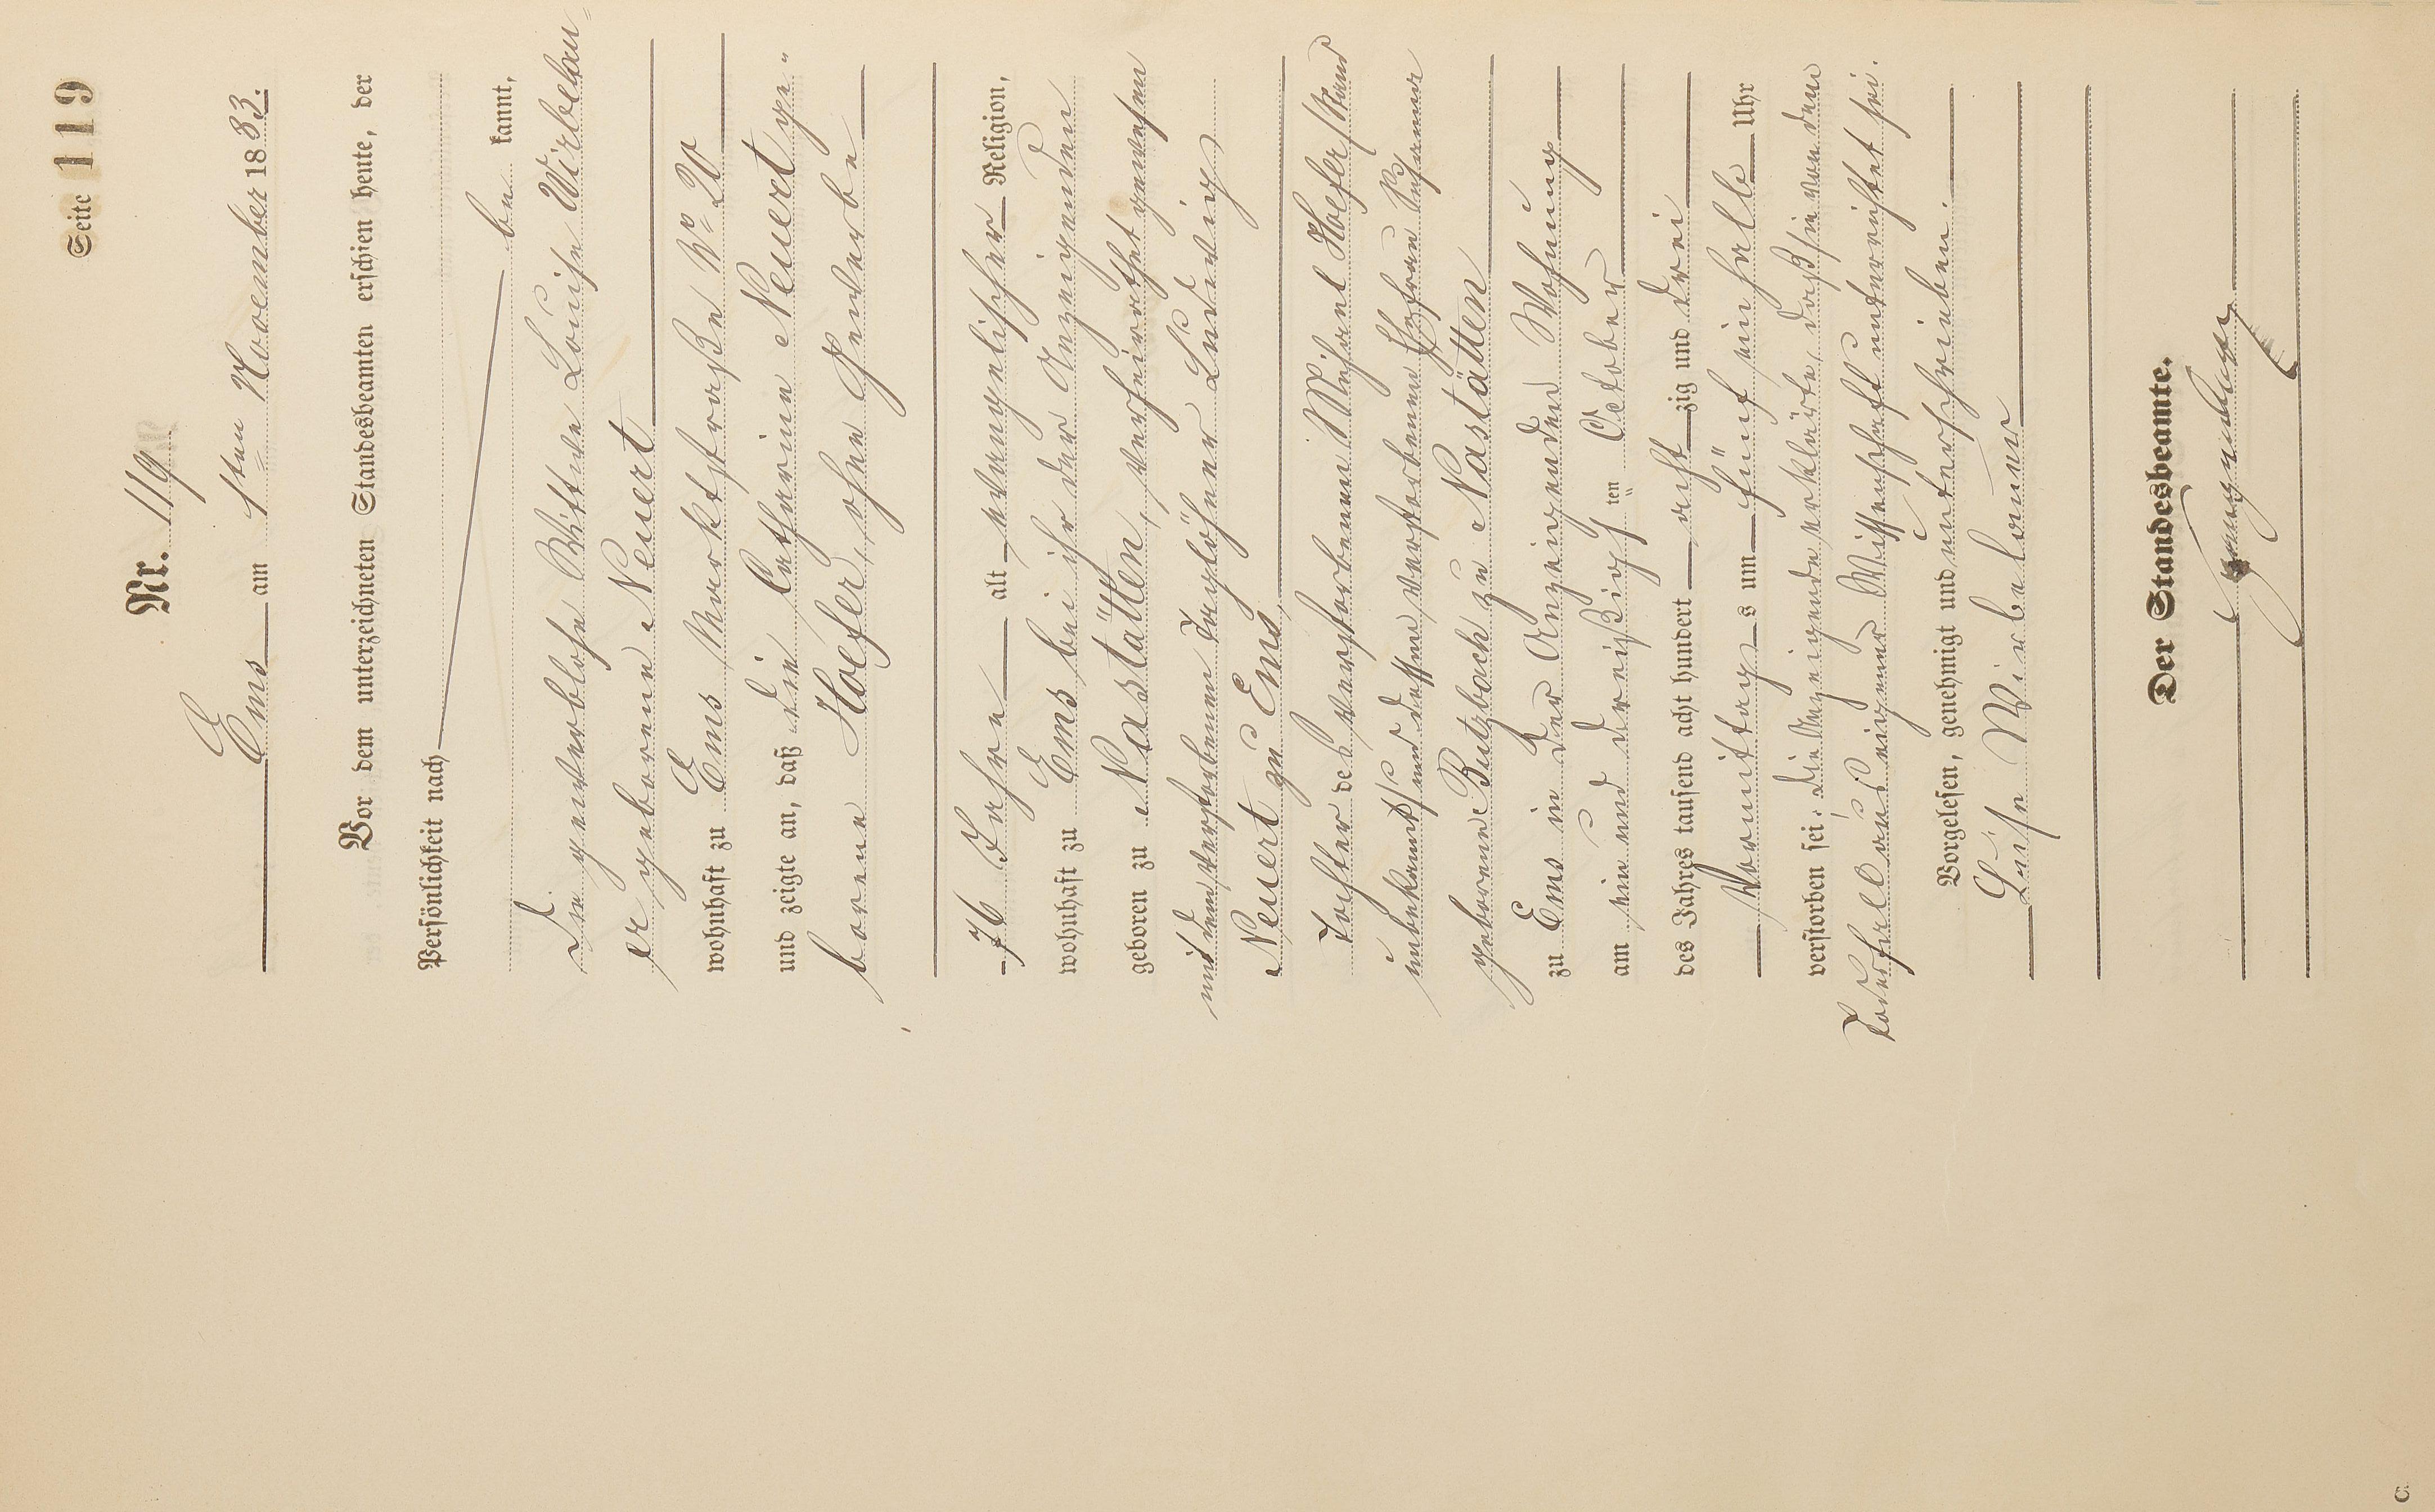 Seite 119
Nr. 119
Ems am 1ten November 1883.
Vor dem unterzeichneten Standesbeamten erschien heute, der
Persönlichkeit nach
be kannt,
Die gewerblose Witwe Louise Wirbelau-
er geborene Neuert
wohnhaft zu Ems Marktstraße No 20
und zeigte an, daß die Catharine Neuert ge-
borene Hoefer, ohne Gewerbe
76 Jahre alt evangelischer Religion,
wohnhaft zu Ems bei ihr der Anzeigenden
geboren zu Nastätten, verheirathet gewesen
mit dem verstorbenen Taglöhner Ludwig
Neuert zu Ems,
Tochter des verstorbenen Michael Hoefer /:Stand
unbekannt:/ und dessen verstorbenen Ehefrau
geborene Butzbach zu Nastätten
zu Ems in der Anzeigenden Wohnung
am ein und dreißigsten October
des Jahres tausend acht hundert acht zig und drei
Vormittags um fünf ein halb Uhr
verstorben sei; die Anzeigende erklärte, daß sie von dem
Todesfall aus eigener Wissenschaft unterrichtet sei.
Vorgelesen, genehmigt und unterschrieben.
Luise Wirbelauer
Der Standesbeamte.